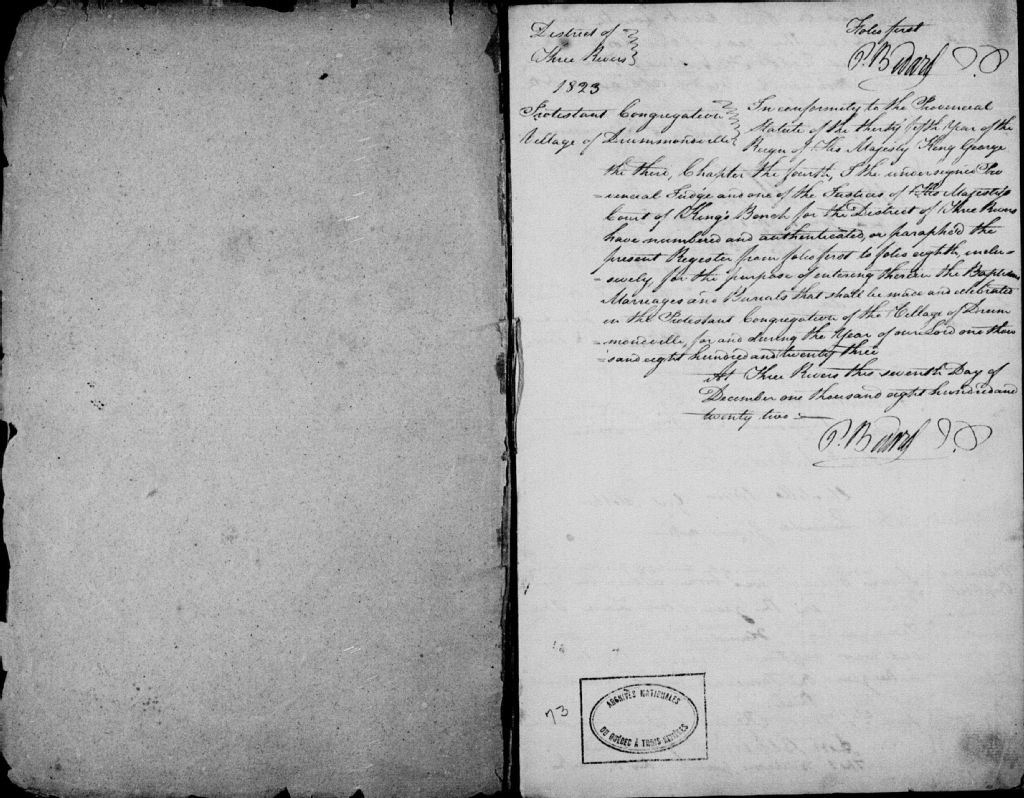 District of
Three Rivers
1823
Protestant Congregation
Village of Drummondville
Folio first
P. Bedard J. P.
In conformity to the Provincial
Statute of the thirty fifth Year of the
Reign of His Majesty King George
the third, Chapter the fourth, I the undersigned Pro
=vincial Judge and one of the Justices of His Majesty's
Court of King's Bench for the District of Three Rivers
have numbered and authenticated, or paraphed the
present Register from folio first to folio eighth, inclu-
=sively, for the purpose of entering therein the Baptisms
Marriages and Burials that shall be made and celebrated
in the Protestant Congregation of the Village of Drum
=mondville, for and during the Year of our Lord one thou
=sand eight hundred and twenty three
At Three Rivers this seventh Day of
December one thousand eight hundred and
twenty two :
P. Bedard J. P.
73
ARCHIVES NATIONALES
DU QUÉBEC À TROIS-RIVIÈRES